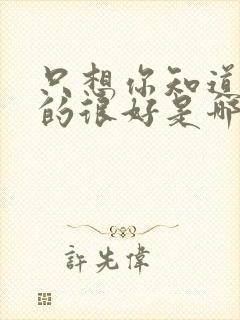 只想你知道
的很好是那
許先偉